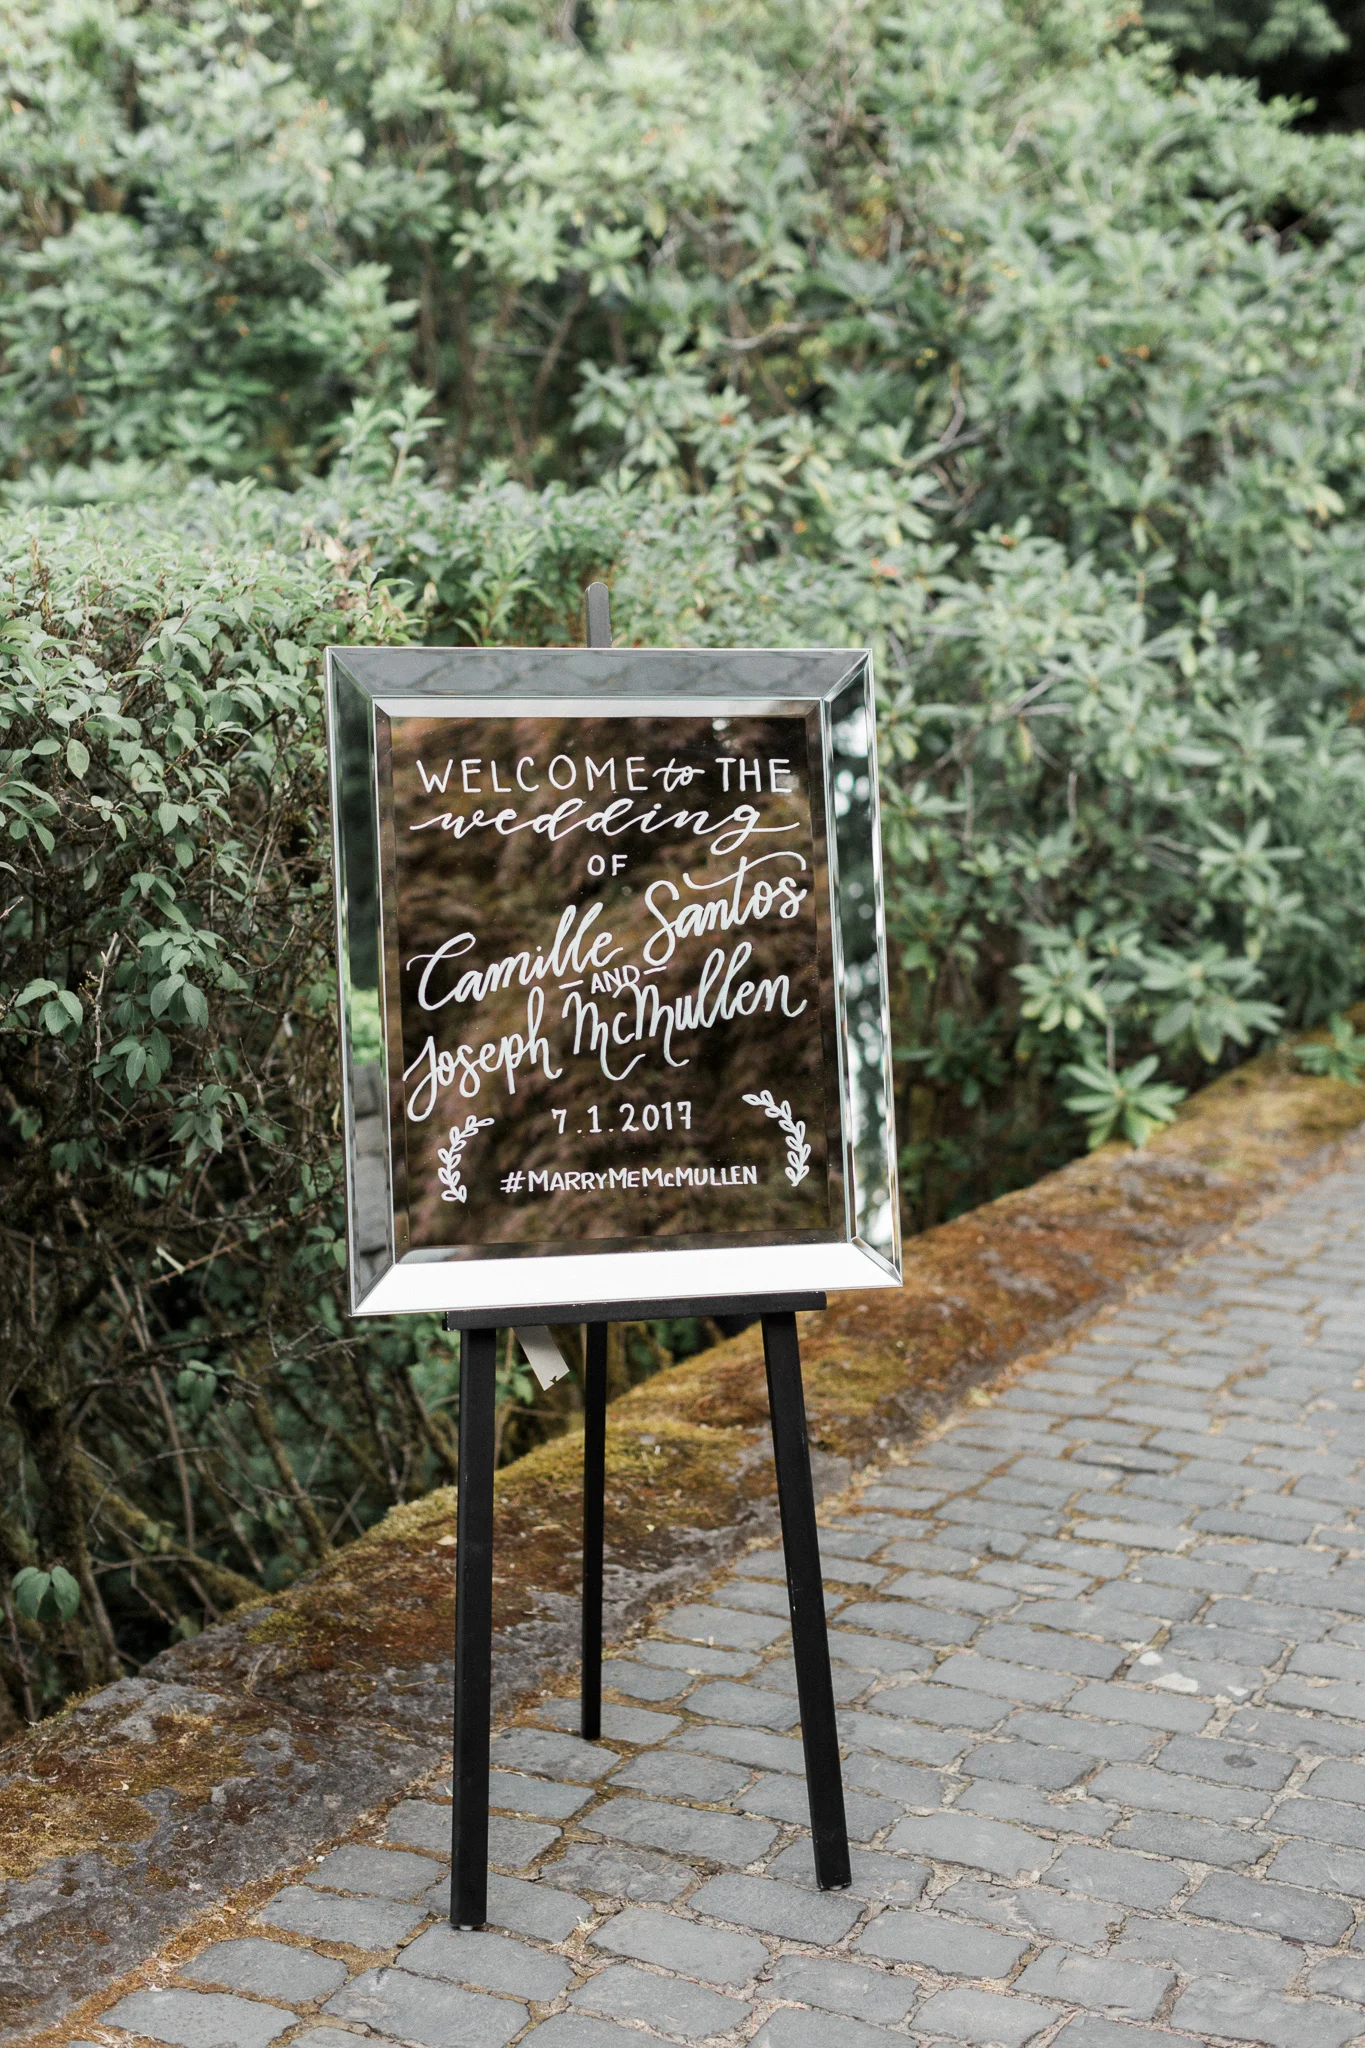 WELCOME to THE
wedding
OF
Camille Santos
AND
Joseph McMullen
7.1.2017
#MARRYMEMcMULLEN